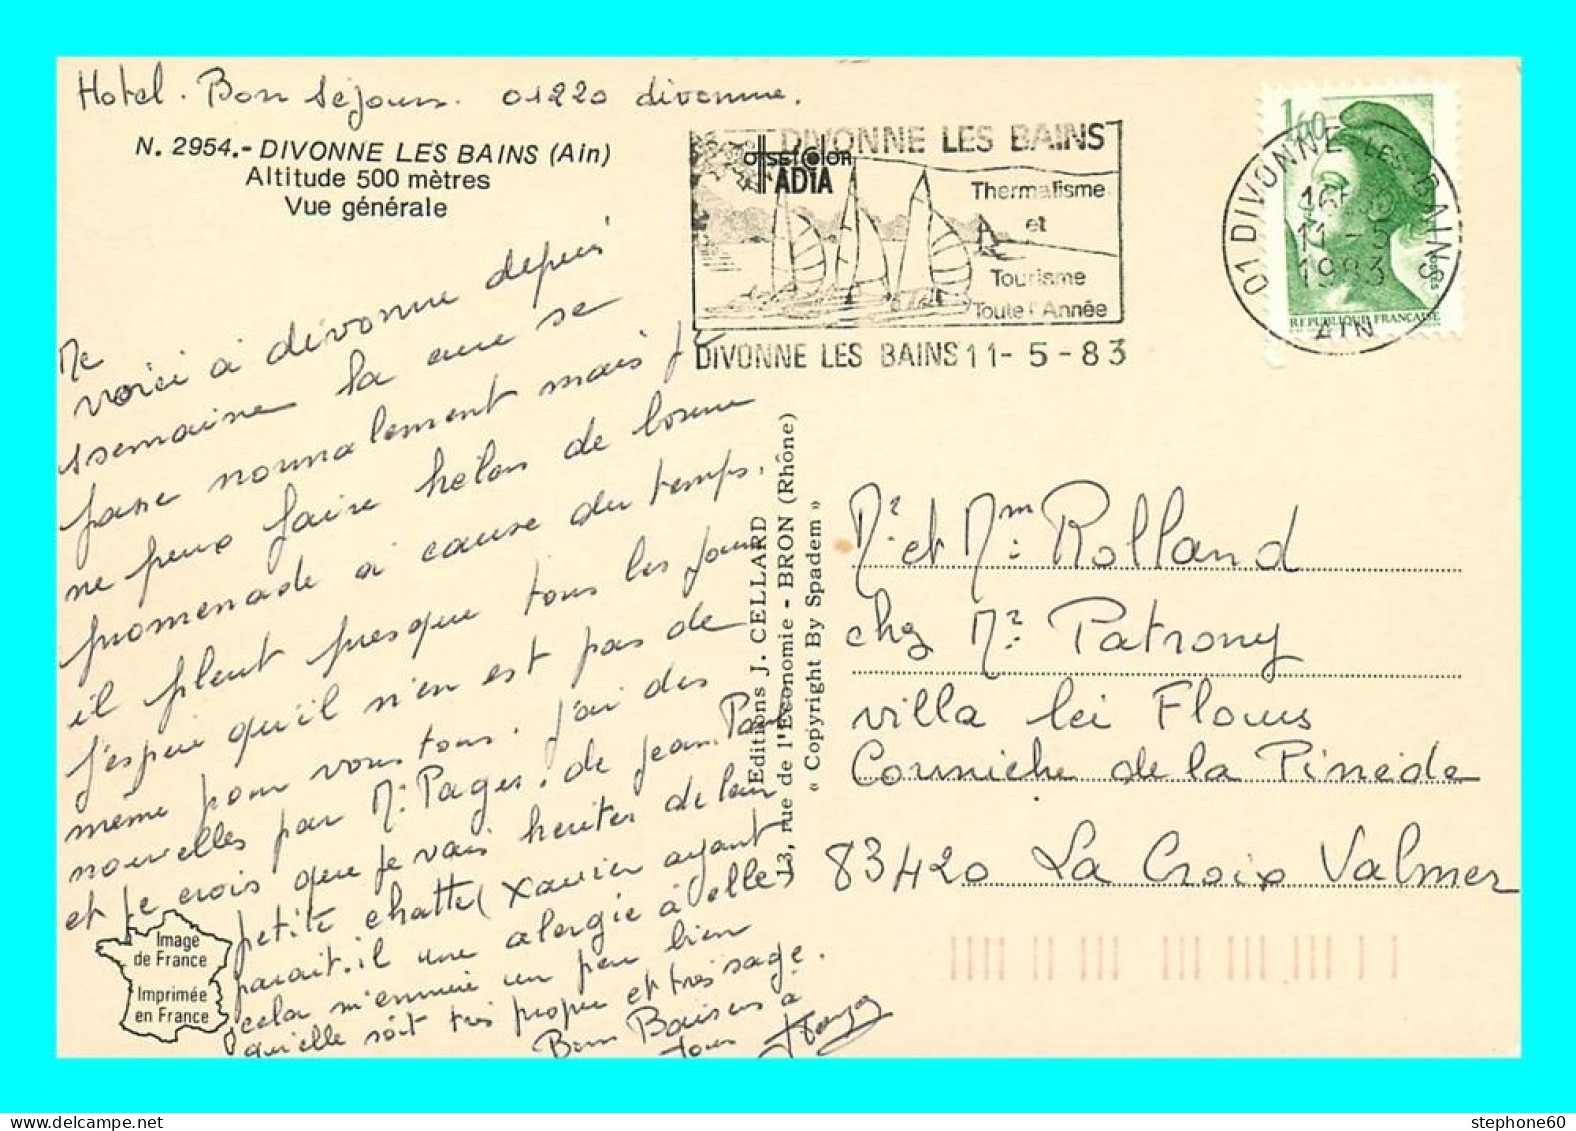 Hotel. Bon Séjour. 01220 divonne.
N. 2954.- DIVONNE LES BAINS (Ain)
Altitude 500 mètres
Vue générale
Me
voici à divonne depuis
1 semaine la cure se
passe normalement mais je
ne peux faire hélas de bonne
promenade à cause du temps.
il pleut presque tous les jours
j'espère qu'il n'en est pas de
même pour vous tous. j'ai des
nouvelles par Mr Pages. de Jean. Paul
et je crois que je vais heriter de leur
petite chatte (Xavier ayant
parait.il une alergie à elle)
cela m'ennuie un peu bien
qu'elle soit très propre et très sage.
Bons Baisers à
tous
DIVONNE LES BAINS
offset color
ADIA
Thermalisme
et
Tourisme
Toute l'Année
DIVONNE LES BAINS 11-5-83
1,60
REPUBLIQUE FRANÇAISE
01 DIVONNE LES BAINS
11-5
1983
AIN
Editions J. CELLARD
13, rue de l'Economie - BRON (Rhône)
« Copyright By Spadem »
Mr et Mme Rolland
chez Mr Patrony
villa lei Flous
Corniche de la Pinède
83420 La Croix Valmer
Image
de France
Imprimée
en France
stephone60